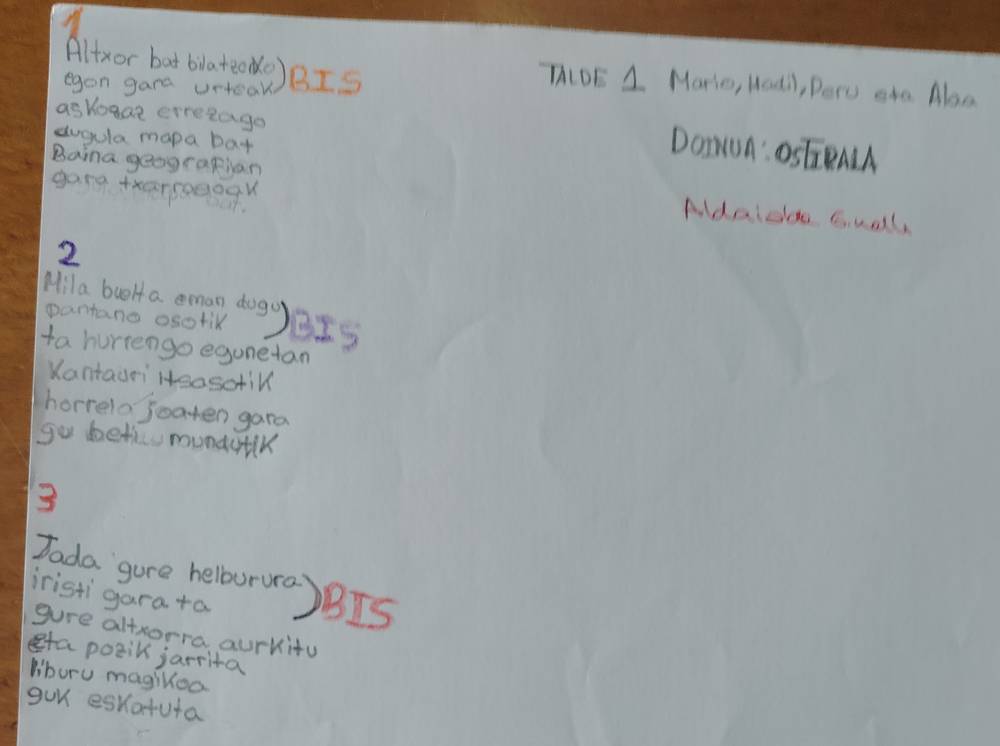 1
Altxor bat bilatzeko) BIS
egon gara urteak
askogaz errezago
dugula mapa bat
Baina geografian
gara txarragoak
2
Mila buelta eman dugu) BIS
pantano osotik
ta hurrengo egunetan
Kantauri itsasotik
horrela joaten gara
gu beti mundutik
3
Jada gure helburura) BIS
iristi gara ta
gure altxorra aurkitu
eta pozik jarrita
liburu magikoa
guk eskatuta
TALDE 1 Mario, Hadil, Peru eta Alaa
DOINUA: OSTIRALA